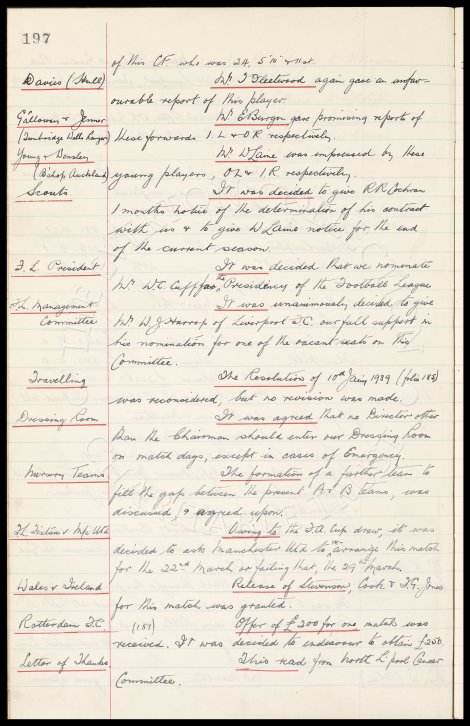 197
of this C.F. who was 24, 5'10" & 11st.
Davies (Hull) Mr. T Fleetwood again gave an unfav-
ourable report of this player.
Galloway & Jenner Mr. E Burgon gave promising reports of
(Tunbridge Wells Rangers) these forwards I.L & O.R respectively.
Young & Mr. W Lane was impressed by these
(Bishop Auckland) young players, O.L & I.R. respectively.
Scouts It was decided to give R.R Cochran
1 months notice of the determination of his contract
with us & to give W Laine notice for the end
of the current season.
F.L. President It was decided that we nominate
Mr. W.C. Cuff for the Presidency of the Football League
F.L. Management It was unanimously decided to give
Committee Mr. W.J. Harrop of Liverpool F.C. our full support in
his nomination for one of the vacant seats on this
Committee.
Travelling The Resolution of 10th Jany 1939 (folio 185)
was reconsidered, but no revision was made.
Dressing Room It was agreed that no Director other
than the Chairman should enter our Dressing Room
on match days, except in cases of Emergency.
Nursery Teams The formation of a further team to
fill the gap between the present A & B teams, was
discussed & agreed upon.
F.L. Fixture v M/c Utd Owing to the F.A. Cup draw, it was
decided to ask Manchester Utd to re-arrange this match
for the 22nd March or failing that, the 29th March.
Wales v Ireland Release of Stevenson, Cook & T.G. Jones
for this match was granted.
Rotterdam F.C (187) Offer of £200 for one match was
received. It was decided to endeavour to obtain £250.
Letter of Thanks This read from North L'pool Cancer
Committee.